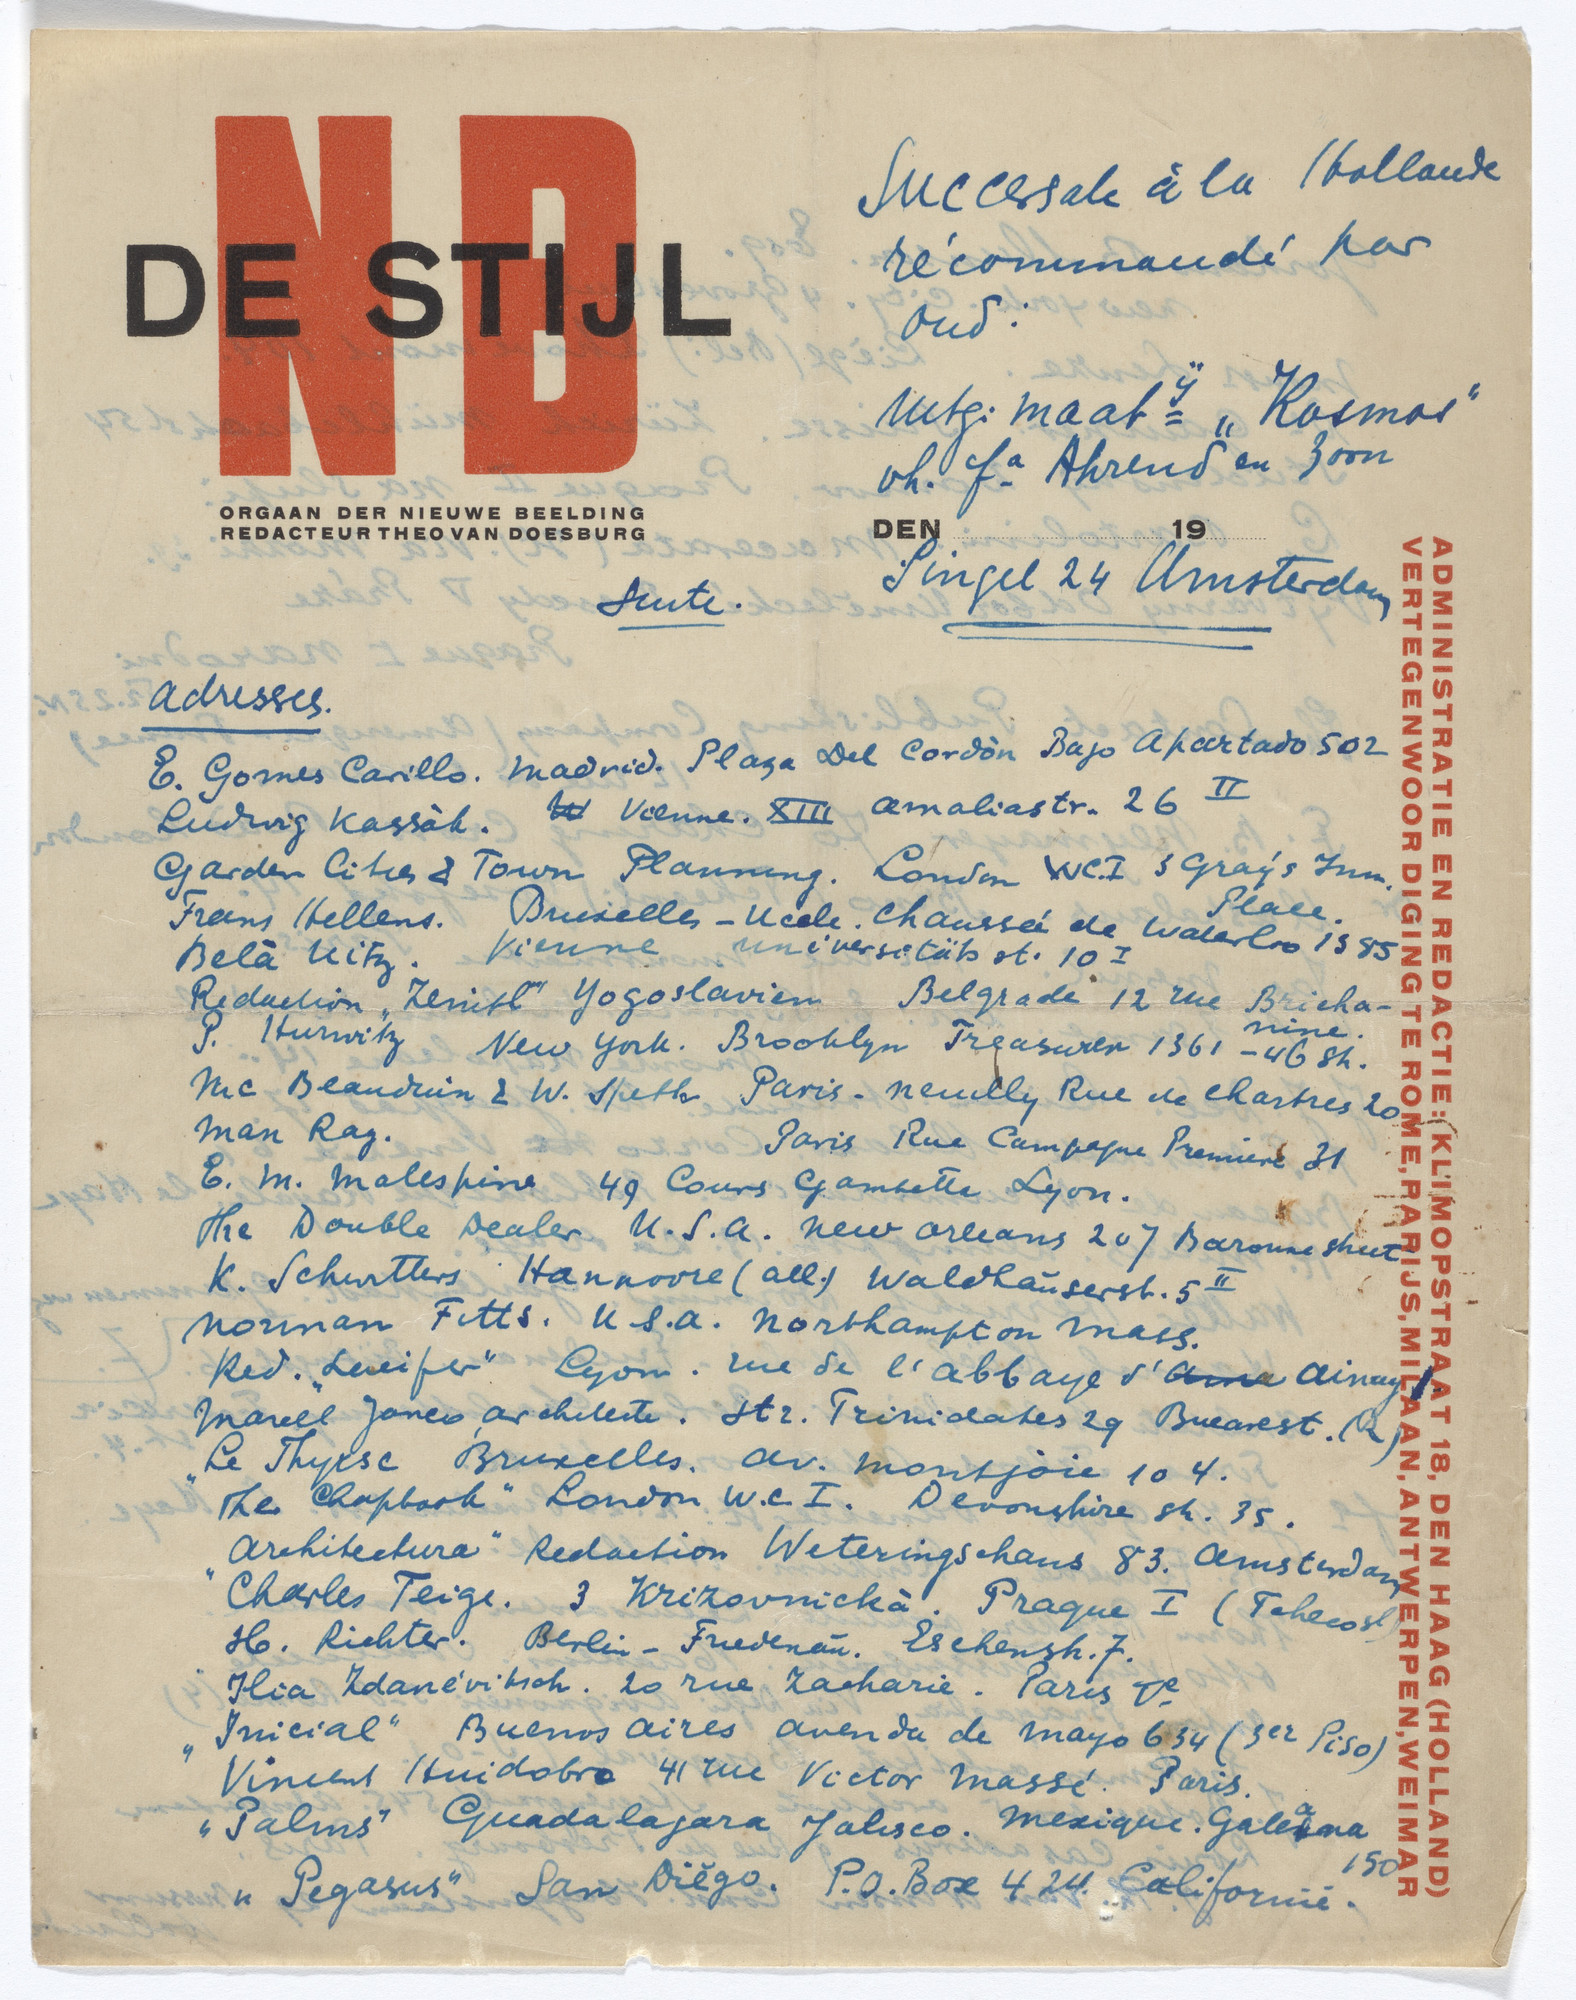 NB
DE STIJL
ORGAAN DER NIEUWE BEELDING
REDACTEUR THEO VAN DOESBURG
Succersale à la Hollande
récommandé par
Oud.
Uitg. maatÿ „Kosmos"
vh. fa Ahrend en Zoon
DEN 19
Singel 24 Amsterdam
Suite.
adresses.
E. Gomes Carillo. Madrid. Plaza Del Cordòn Bajo Apartado 502
Ludwig Kassàk. Vienne. XIII Amaliastr. 26 II
Garden Cities & Town Planning. London W.C.I 3 Gray's Inn.
Place.
Frans Hellens. Bruxelles - Uccle. Chausseé de Waterloo 1385
Belà Uitz. Vienne Universitäts st. 10 I
Redaction „Zenit" Yogoslavien Belgrade 12 rue Bricha-
nine.
P. Hurwitz New York. Brooklyn Treasurer 1361 - 46 Str.
Mc Beauduin & W. Speth Paris - Neuilly Rue de Chartres 20
Man Ray. Paris Rue Campagne Premiere 31
E. M. Malespine 49 Cours Gambetta Lyon.
The Double Dealer U.S.A. New Orleans 207 Baronne street
K. Schwitters Hannovre (all.) Waldhäuserst. 5 II
Norman Fitts. U.S.A. Northampton Mass.
Red. „Lucifer" Lyon. rue de l'abbaye d'Ainay 1.
Marcel Janco architecte. Str. Trinidates 29 Bucarest. (R)
„Le Thyrse Bruxelles. av. Montjoie 104.
The Chapbook" London W.C.I. Devonshire Str. 35.
„Architectura" Redaction Weteringschans 83. Amsterdam
Charles Teige. 3 Krizovnickà. Prague I (Tchecosl)
H. Richter. Berlin - Friedenau. Eschenstr. 7.
Ilia Zdanévitsch. 20 rue Zacharie. Paris Ve
„Inicial" Buenos Aires avenda de Mayo 634 (3er Piso)
Vincent Huidobro 41 rue Victor Massé. Paris.
„Palms" Guadalajara Jalisco. Mexique. Galeana
150
„Pegasus" San Diégo. P.O. Box 424 Californie.
ADMINISTRATIE EN REDACTIE: KLIMOPSTRAAT 18, DEN HAAG (HOLLAND)
VERTEGENWOORDIGING TE ROME, PARIJS, MILAAN, ANTWERPEN, WEIMAR